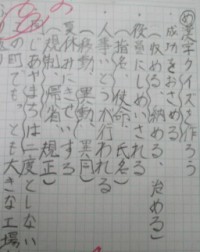 め漢字クイズを作ろう
成功をおさめる
(収める 納める 治める)
役員にしめいされる
(指名 使命 氏名)
人事いどうが行われる
(移動 異動 異同)
夏休みにきせいする
(規制 帰省 規正)
あやまちは二度としない
の町でもっとも大きな工場